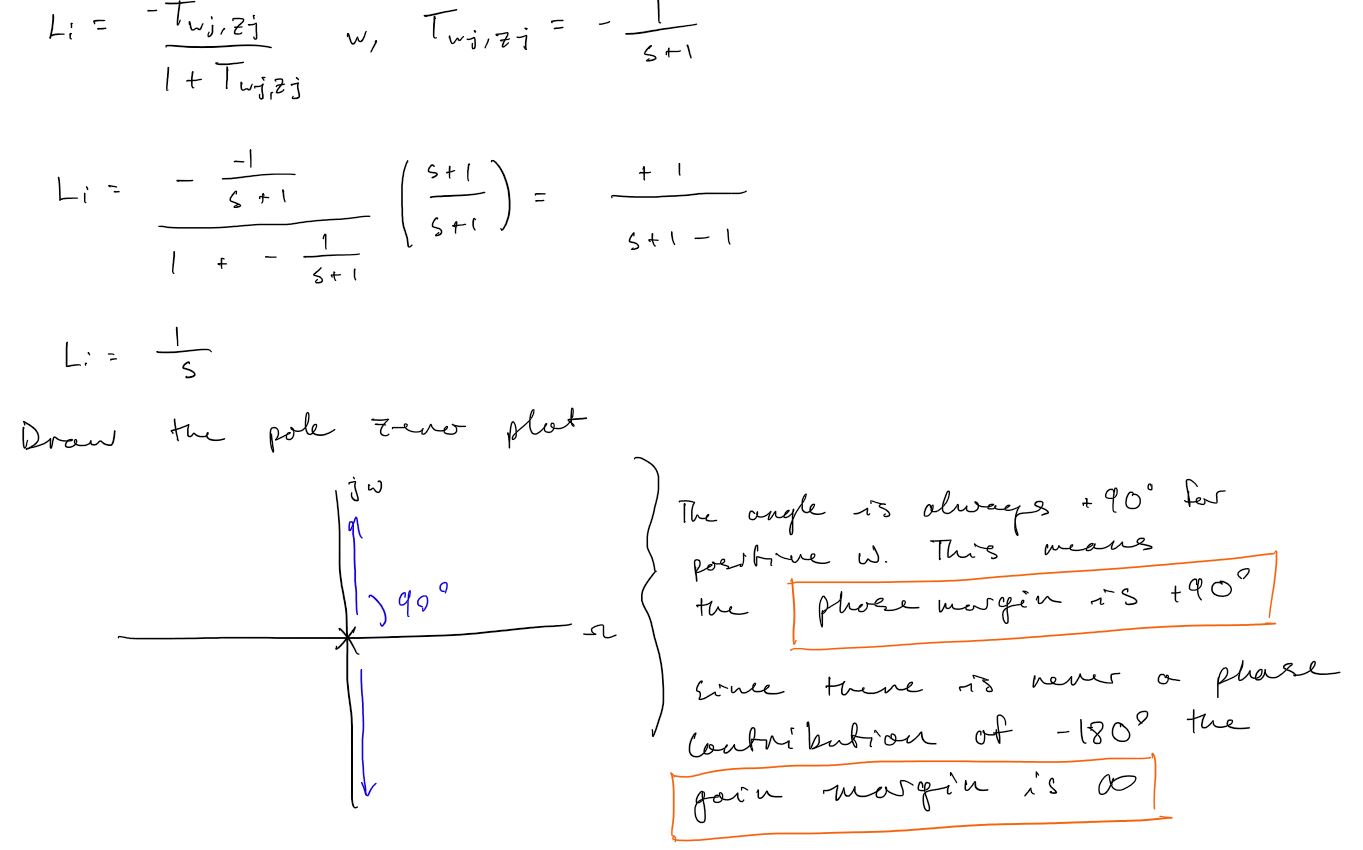 Li = -Twj,zj / (1 + Twj,zj) w, Twj,zj = - 1 / (s+1)
Li = (- -1/(s+1)) / (1 + - 1/(s+1)) ((s+1)/(s+1)) = +1 / (s+1-1)
Li = 1/s
Draw the pole zero plot
jω
90°
The angle is always +90° for
positive ω. This means
the phase margin is +90°
Since there is never a phase
contribution of -180° the
gain margin is ∞